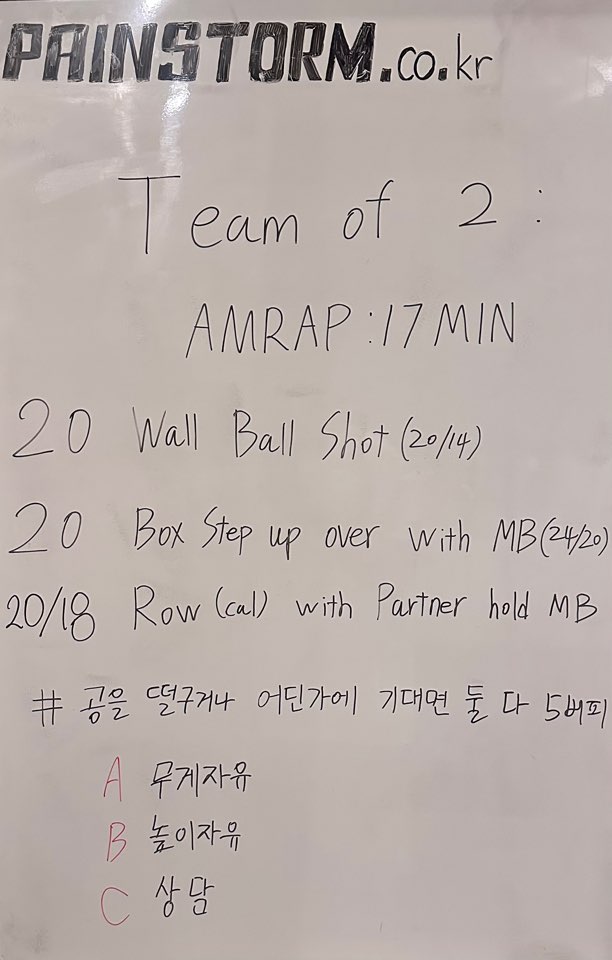 PAINSTORM.co.kr
Team of 2 :
AMRAP : 17 MIN
20 Wall Ball Shot (20/14)
20 Box Step up over with MB (24/20)
20/18 Row (cal) with Partner hold MB
# 공을 떨구거나 어딘가에 기대면 둘 다 5버피
A 무게자유
B 높이자유
C 상담